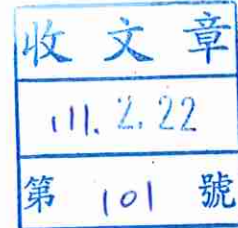 收文章
111. 2. 22
第 101 號